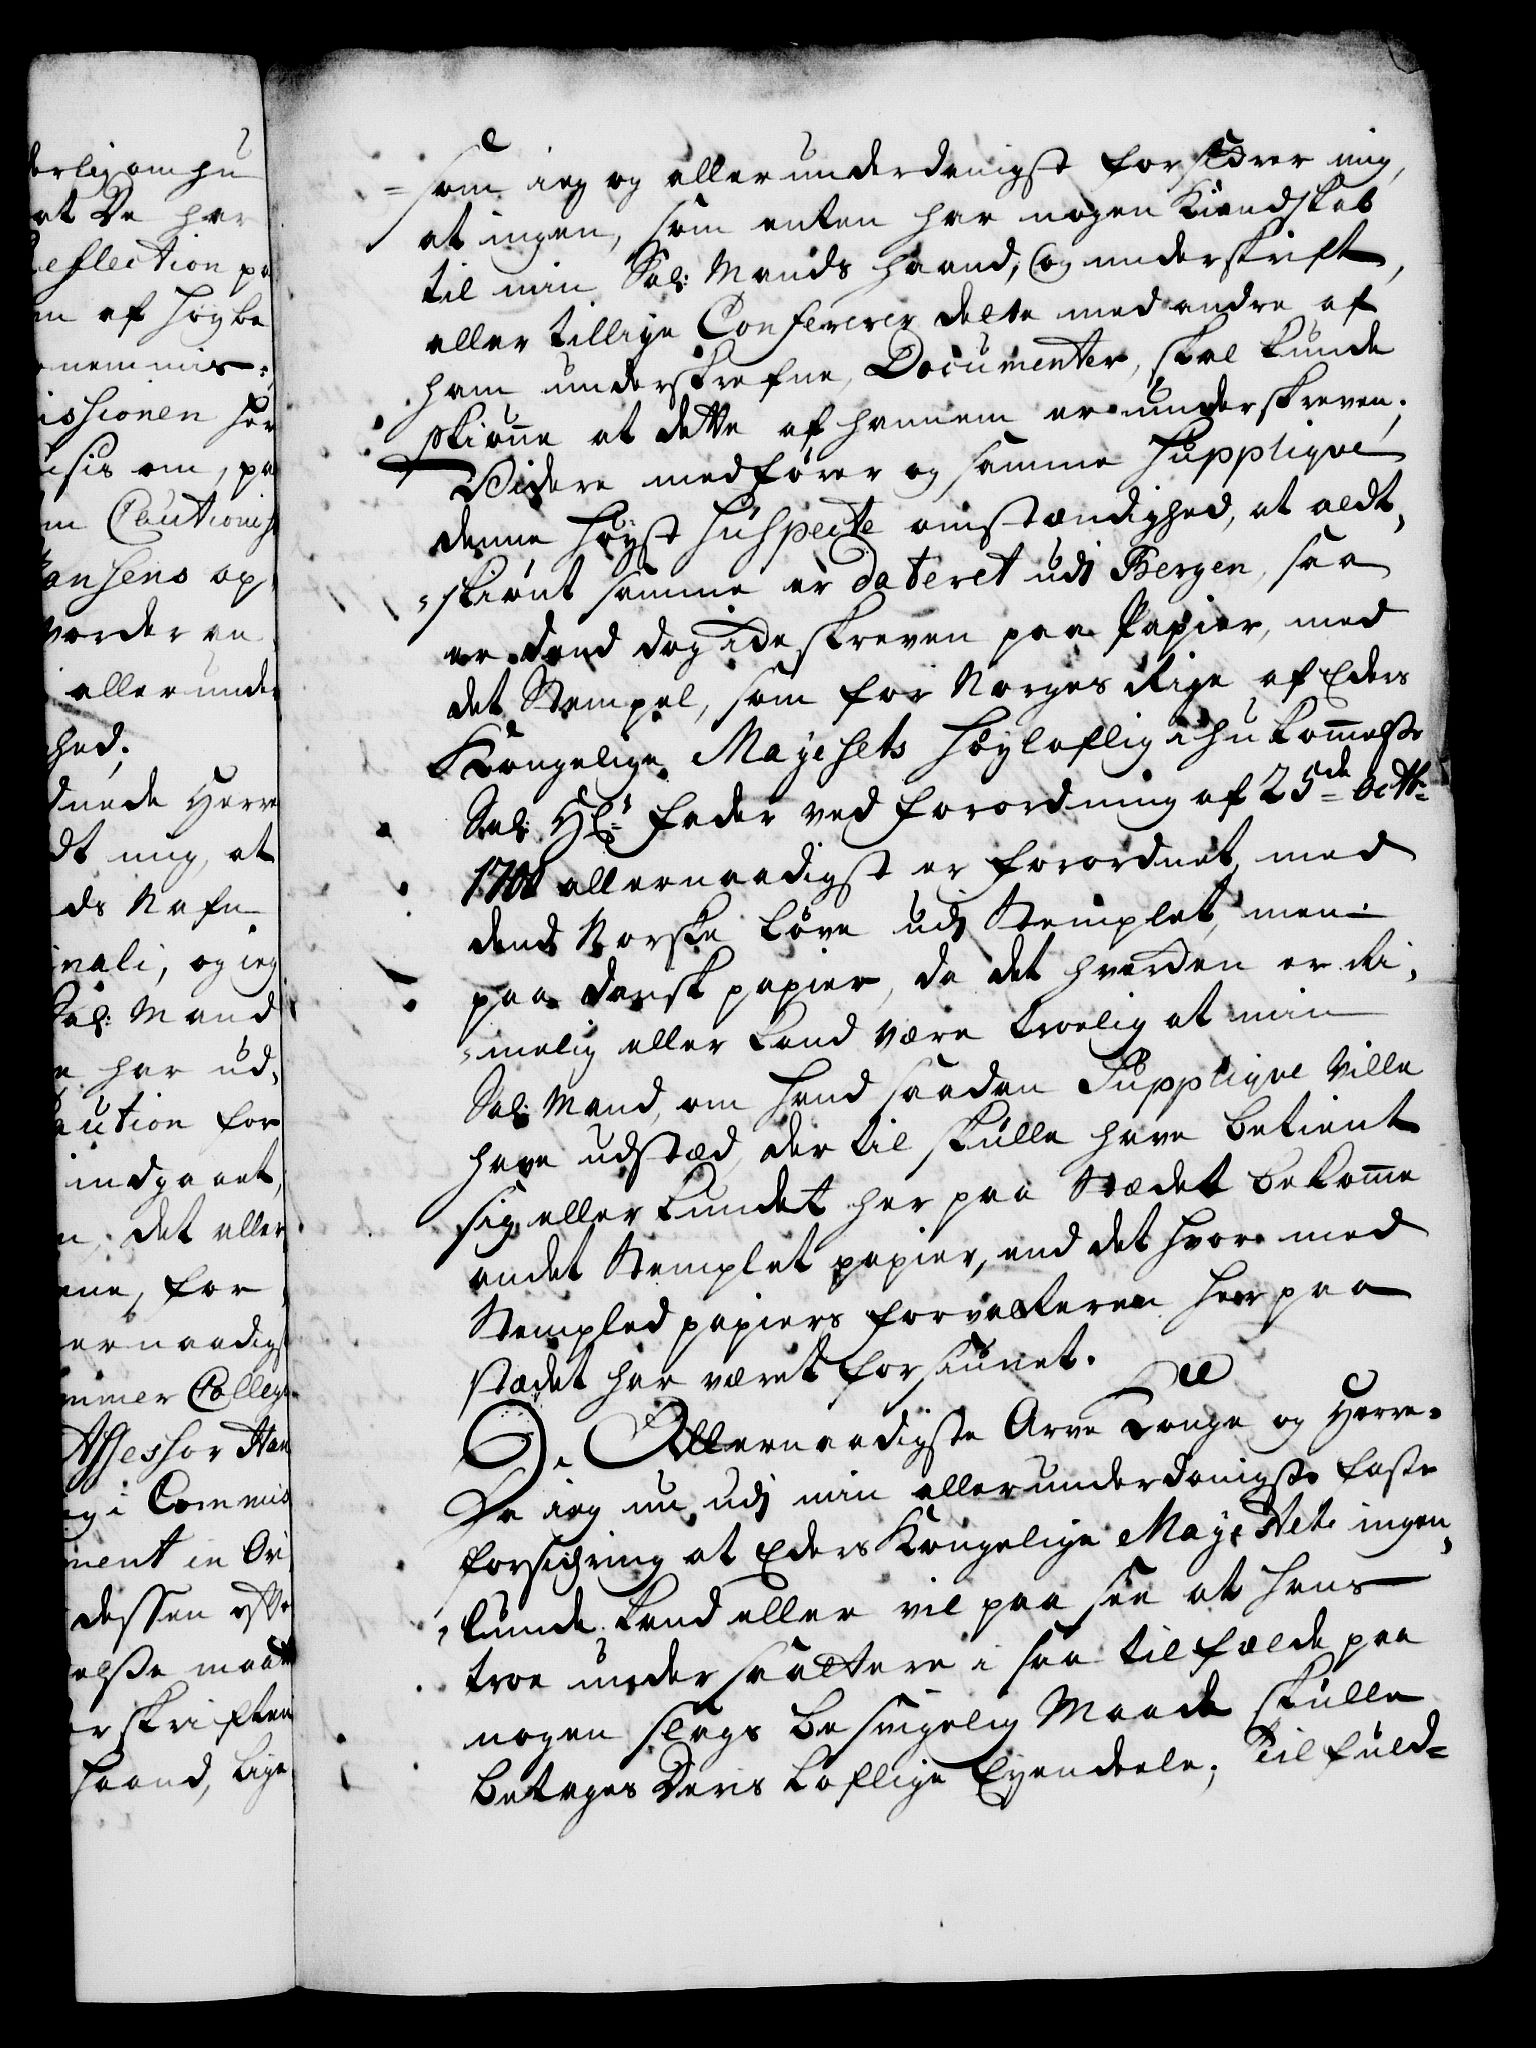 derlig om hu
at De har
Reflection pa
m af Høybe
nemmis=
issionen her
isis om, pa
m Cautionis
ansens op,
vorder en
allerunder
hed;
dnede Herre
dt mig, at
ds Nafn
inali, og ieg
Sal: Mand
e har ud,
aution for
indgaaet,
n, det aller
ene, for
ernaadigst
mmer Colleg
Assessor Han
eg i Commis
ment in Ori
dessen
else maatte
erskriften
haand, lige
=som ieg og allerunderdanigst forsikrer mig,
at ingen, som enten har nogen Kiendskab
til min Sal: Mands haand, og underskrift,
eller tillige Confererer dette med andre af
ham underskrefne, Documenter, skal kunde
skiønne at dette af hannem er underskreven;
Videre medfører og samme Supplique
denne høyst suspecte omstændighed, at aldt,
=skiønt samme er dateret udi Bergen, saa
er dend dog icke skreven paa Papier, med
det Stempel, som for Norges Rige af Eders
Kongelige Mayesets Høyloflig ihukommelse
Sal: Hr: Fader ved forordning af 25de octbr:
1708 allernaadigst er forordnet, med
dend Norske Løve udi Stemplet, men
paa dansk papier, da det hverden er ri,
=melig eller kand være troelig at min
Sal: Mand, om hand saadan Supplique ville
have udstæd, der til skulle have betient
sig, eller kundet her paa Stædet bekomme
andet Stemplet papier, end det hvor med
Stempled papiers forvalteren her paa
stædet har været forsiunet.
Allernaadigste Arve Konge og Herre
Da ieg nu udi min allerunderdanigste faste
forsickring at Eders Kongelige Mayestets ingen,
=lunde kand eller vil paa see at hans
troe undersaattere i saa tilfælde paa
nogen slags besvigelig Maade skulle
betages Deris loflige Eyendeele; Til fuld=